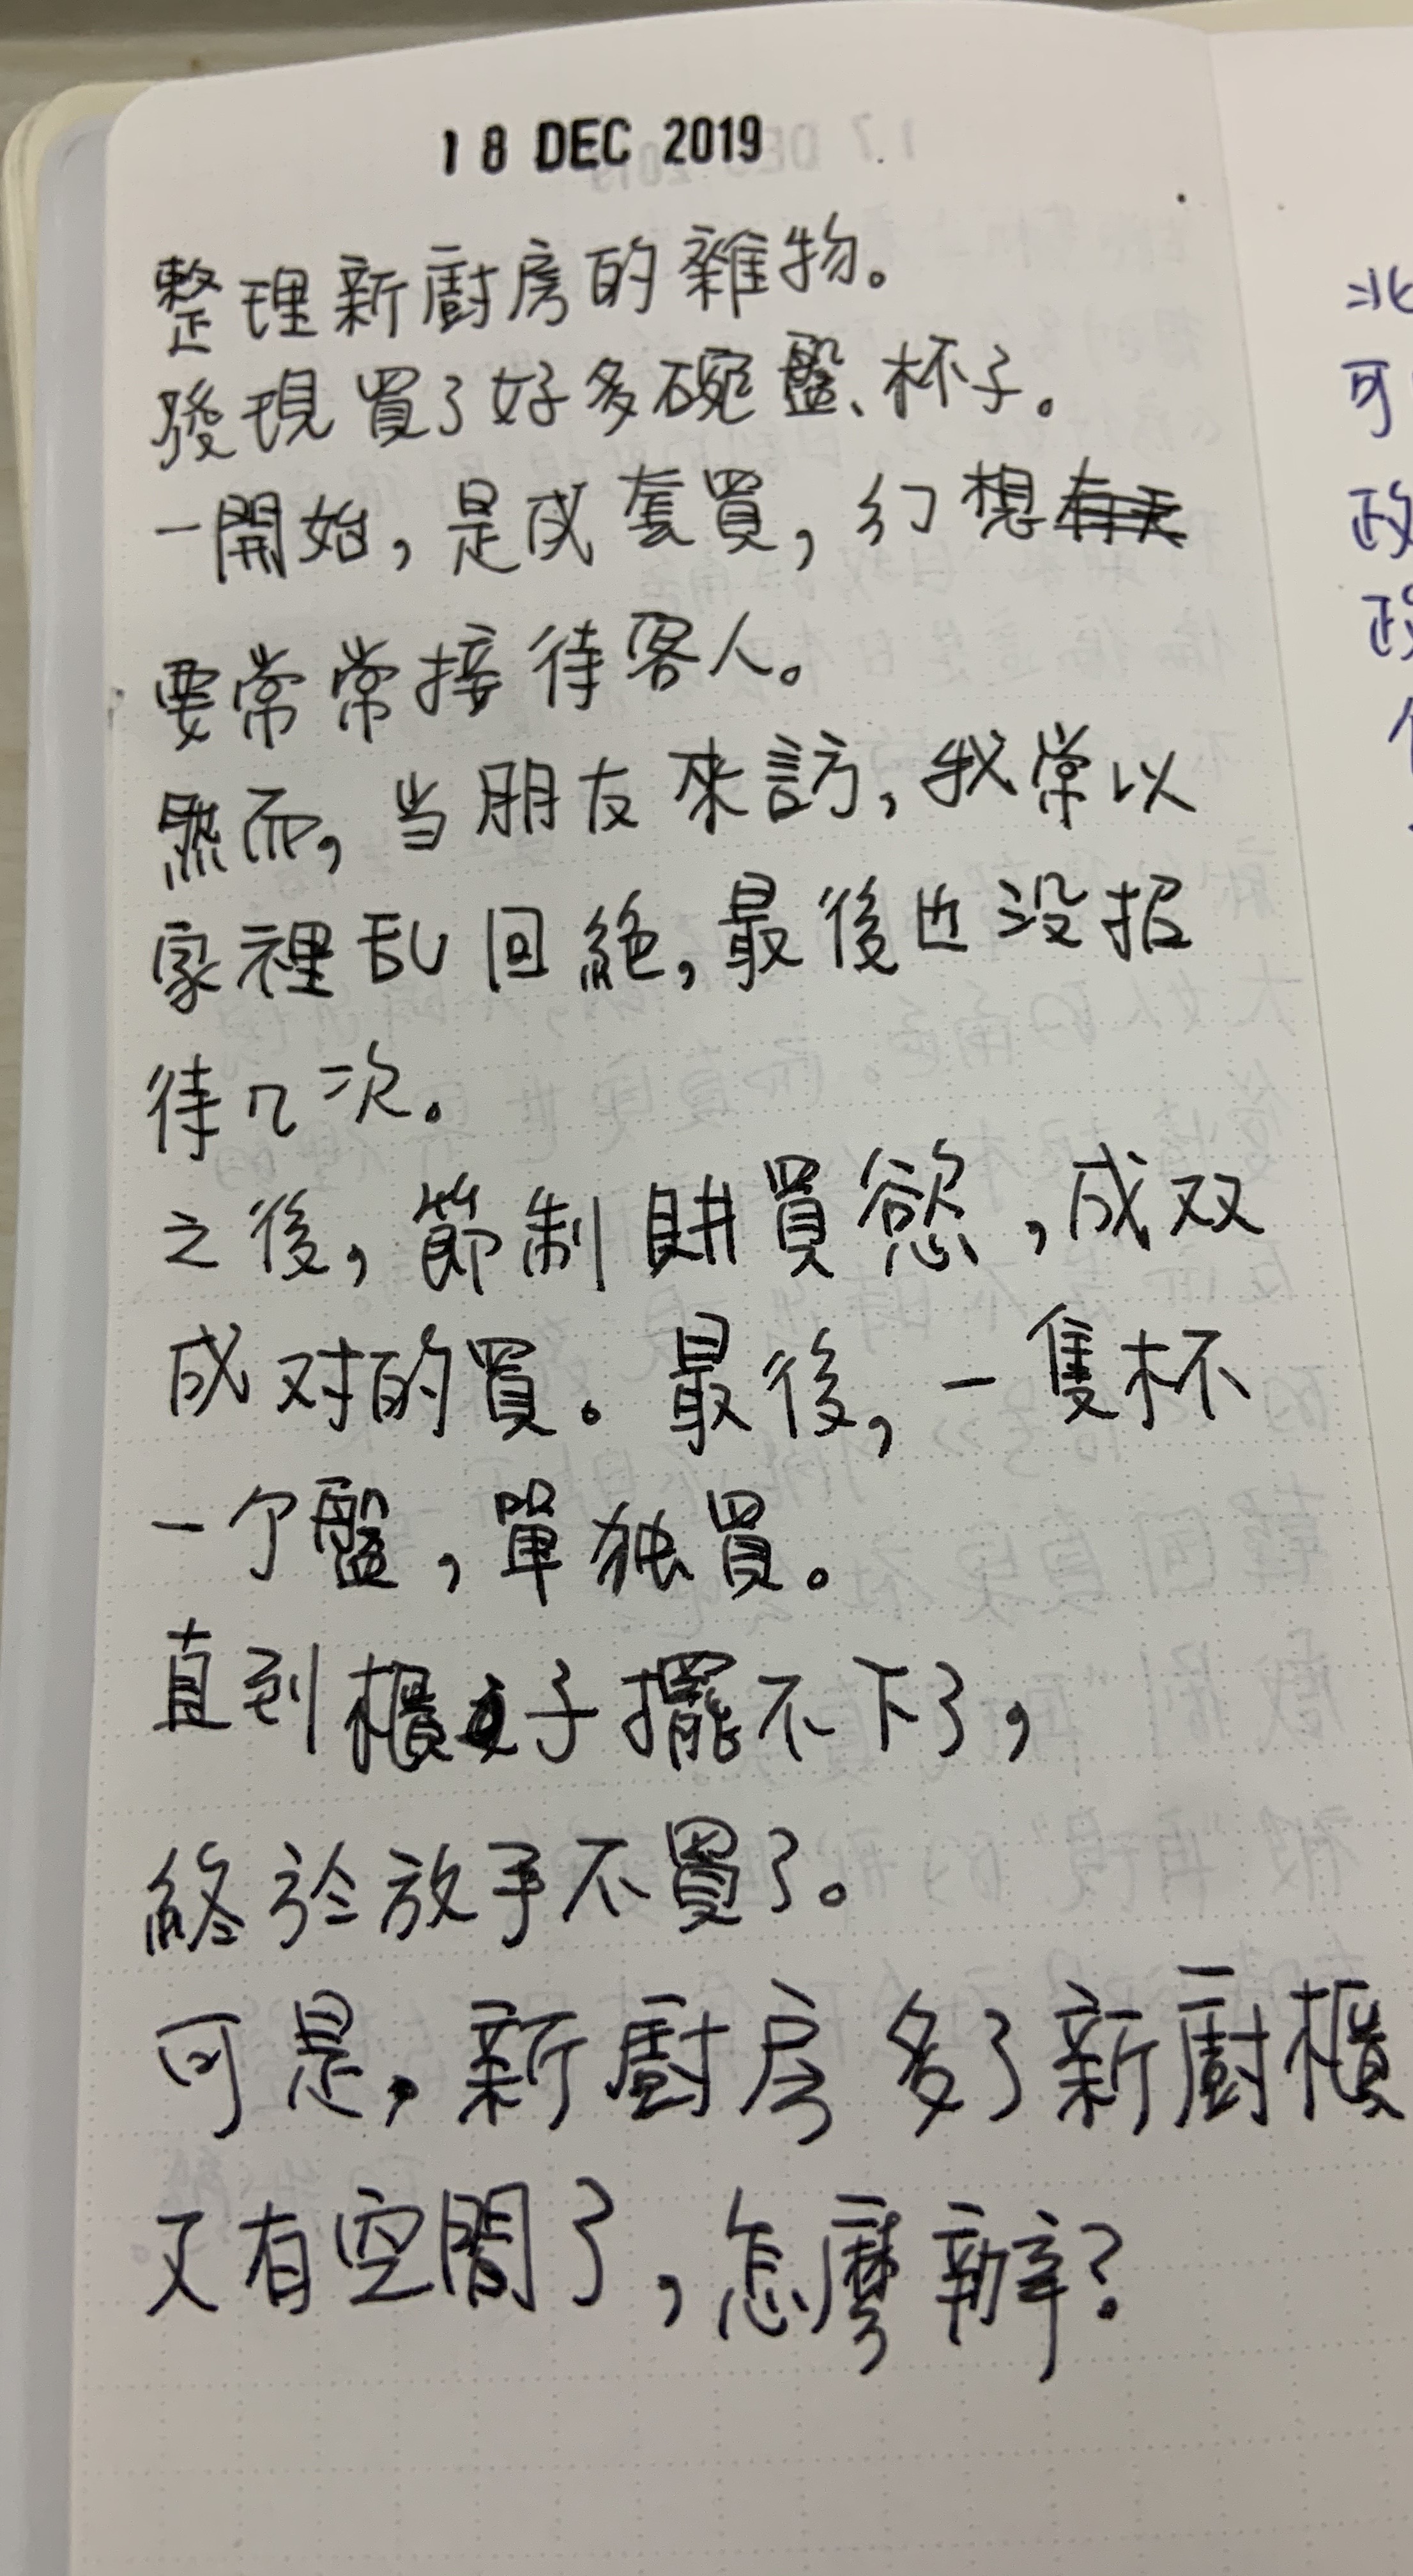 18 DEC 2019
整理新廚房的雜物。
發現買了好多碗盤、杯子。
一開始，是成套買，幻想
要常常接待客人。
然而，当朋友來訪，我常以
家裡乱回絕，最後也没招
待几次。
之後，節制購買慾，成双
成对的買。最後，一隻杯
一个盤，單独買。
直到櫃子擺不下了，
終於放手不買了。
可是，新廚房多了新廚櫃
又有空間了，怎麼辦？
北
可
政
政